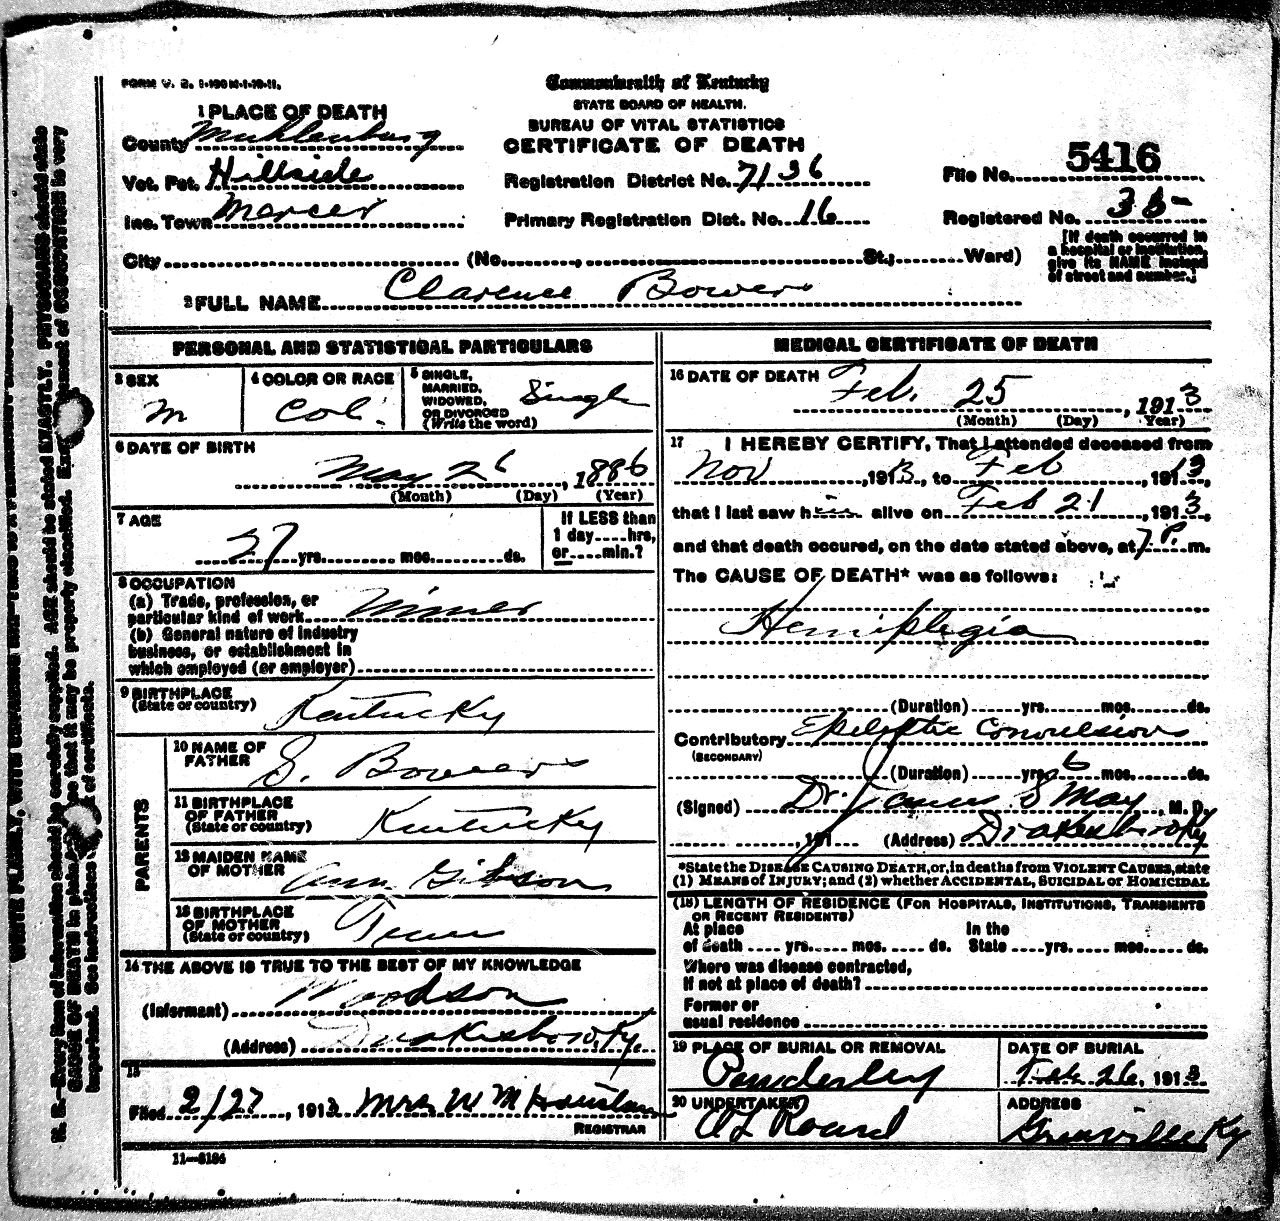 FORM V. S. 1-190 M-1-19-11.
Commonwealth of Kentucky
STATE BOARD OF HEALTH.
BUREAU OF VITAL STATISTICS
CERTIFICATE OF DEATH
1 PLACE OF DEATH
County Muhlenburg
Vot. Pct. Hillside
Inc. Town Mercer
Registration District No. 7136
Primary Registration Dist. No. 16
File No. 5416
Registered No.
[If death occurred in
a hospital or institution,
give its NAME instead
of street and number.]
City (No. , St.; Ward)
2 FULL NAME Clarence Bowers
PERSONAL AND STATISTICAL PARTICULARS
3 SEX
M
4 COLOR OR RACE
Col.
5 SINGLE,
MARRIED,
WIDOWED,
OR DIVORCED
(Write the word)
Single
6 DATE OF BIRTH
May 26, 1886
(Month) (Day) (Year)
7 AGE
27 yrs. mos. ds.
If LESS than
1 day hrs,
or min.?
8 OCCUPATION
(a) Trade, profession, or
particular kind of work Miner
(b) General nature of industry
business, or establishment in
which employed (or employer)
9 BIRTHPLACE
(State or country) Kentucky
PARENTS
10 NAME OF
FATHER S. Bowers
11 BIRTHPLACE
OF FATHER
(State or country) Kentucky
12 MAIDEN NAME
OF MOTHER Ann Gibson
13 BIRTHPLACE
OF MOTHER
(State or country) Tenn
14 THE ABOVE IS TRUE TO THE BEST OF MY KNOWLEDGE
(Informant) Woodson
(Address) Drakesboro, Ky.
15
Filed 2/27, 1913 Mrs W M Houston
REGISTRAR
11-3184
MEDICAL CERTIFICATE OF DEATH
16 DATE OF DEATH Feb. 25, 1913
(Month) (Day) Year)
17 I HEREBY CERTIFY, That I attended deceased from
Nov, 1913, to Feb 1913,
that I last saw him alive on Feb 21, 1913,
and that death occured, on the date stated above, at 7 P. m.
The CAUSE OF DEATH* was as follows:
Hemiplegia
(Duration) yrs. mos. ds.
Contributory Epileptic Convulsions
(SECONDARY)
(Duration) yrs 6 mos. ds.
(Signed) Dr. James S May, M. D.
, 191 (Address) Drakesboro Ky
*State the DISEASE CAUSING DEATH, or, in deaths from VIOLENT CAUSES, state
(1) MEANS of INJURY; and (2) whether ACCIDENTAL, SUICIDAL or HOMICIDAL
(18) LENGTH OF RESIDENCE (FOR HOSPITALS, INSTITUTIONS, TRANSIENTS
OR RECENT RESIDENTS)
At place
of death yrs. mos. ds.
In the
State yrs. mos. ds.
Where was disease contracted,
If not at place of death?
Former or
usual residence
19 PLACE OF BURIAL OR REMOVAL
Powderley
DATE OF BURIAL
Feb 26, 1913
20 UNDERTAKER
ADDRESS
Greenville Ky
WRITE PLAINLY, WITH
N. B.—Every item of information should be carefully supplied. AGE should be stated EXACTLY. PHYSICIANS should state
CAUSE OF DEATH in plain so that it may be properly classified. Exact statement of OCCUPATION is very
important. See instructions of certificate.